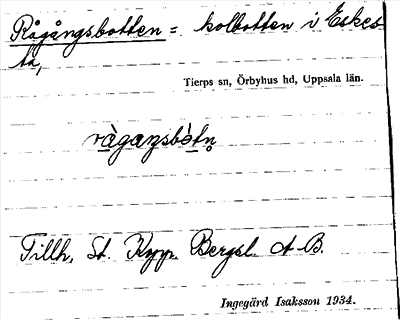 Rågångsbotten = kolbotten i Eskes-
ta,
Tierps sn, Örbyhus hd, Uppsala län.
rågaŋsbòtn̥
Tillh. St. Kopp. Bergsl. A-B.
Ingegärd Isaksson 1934.